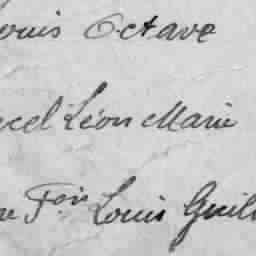 Louis Octave
cel Léon Marie
re Fois Louis Guil